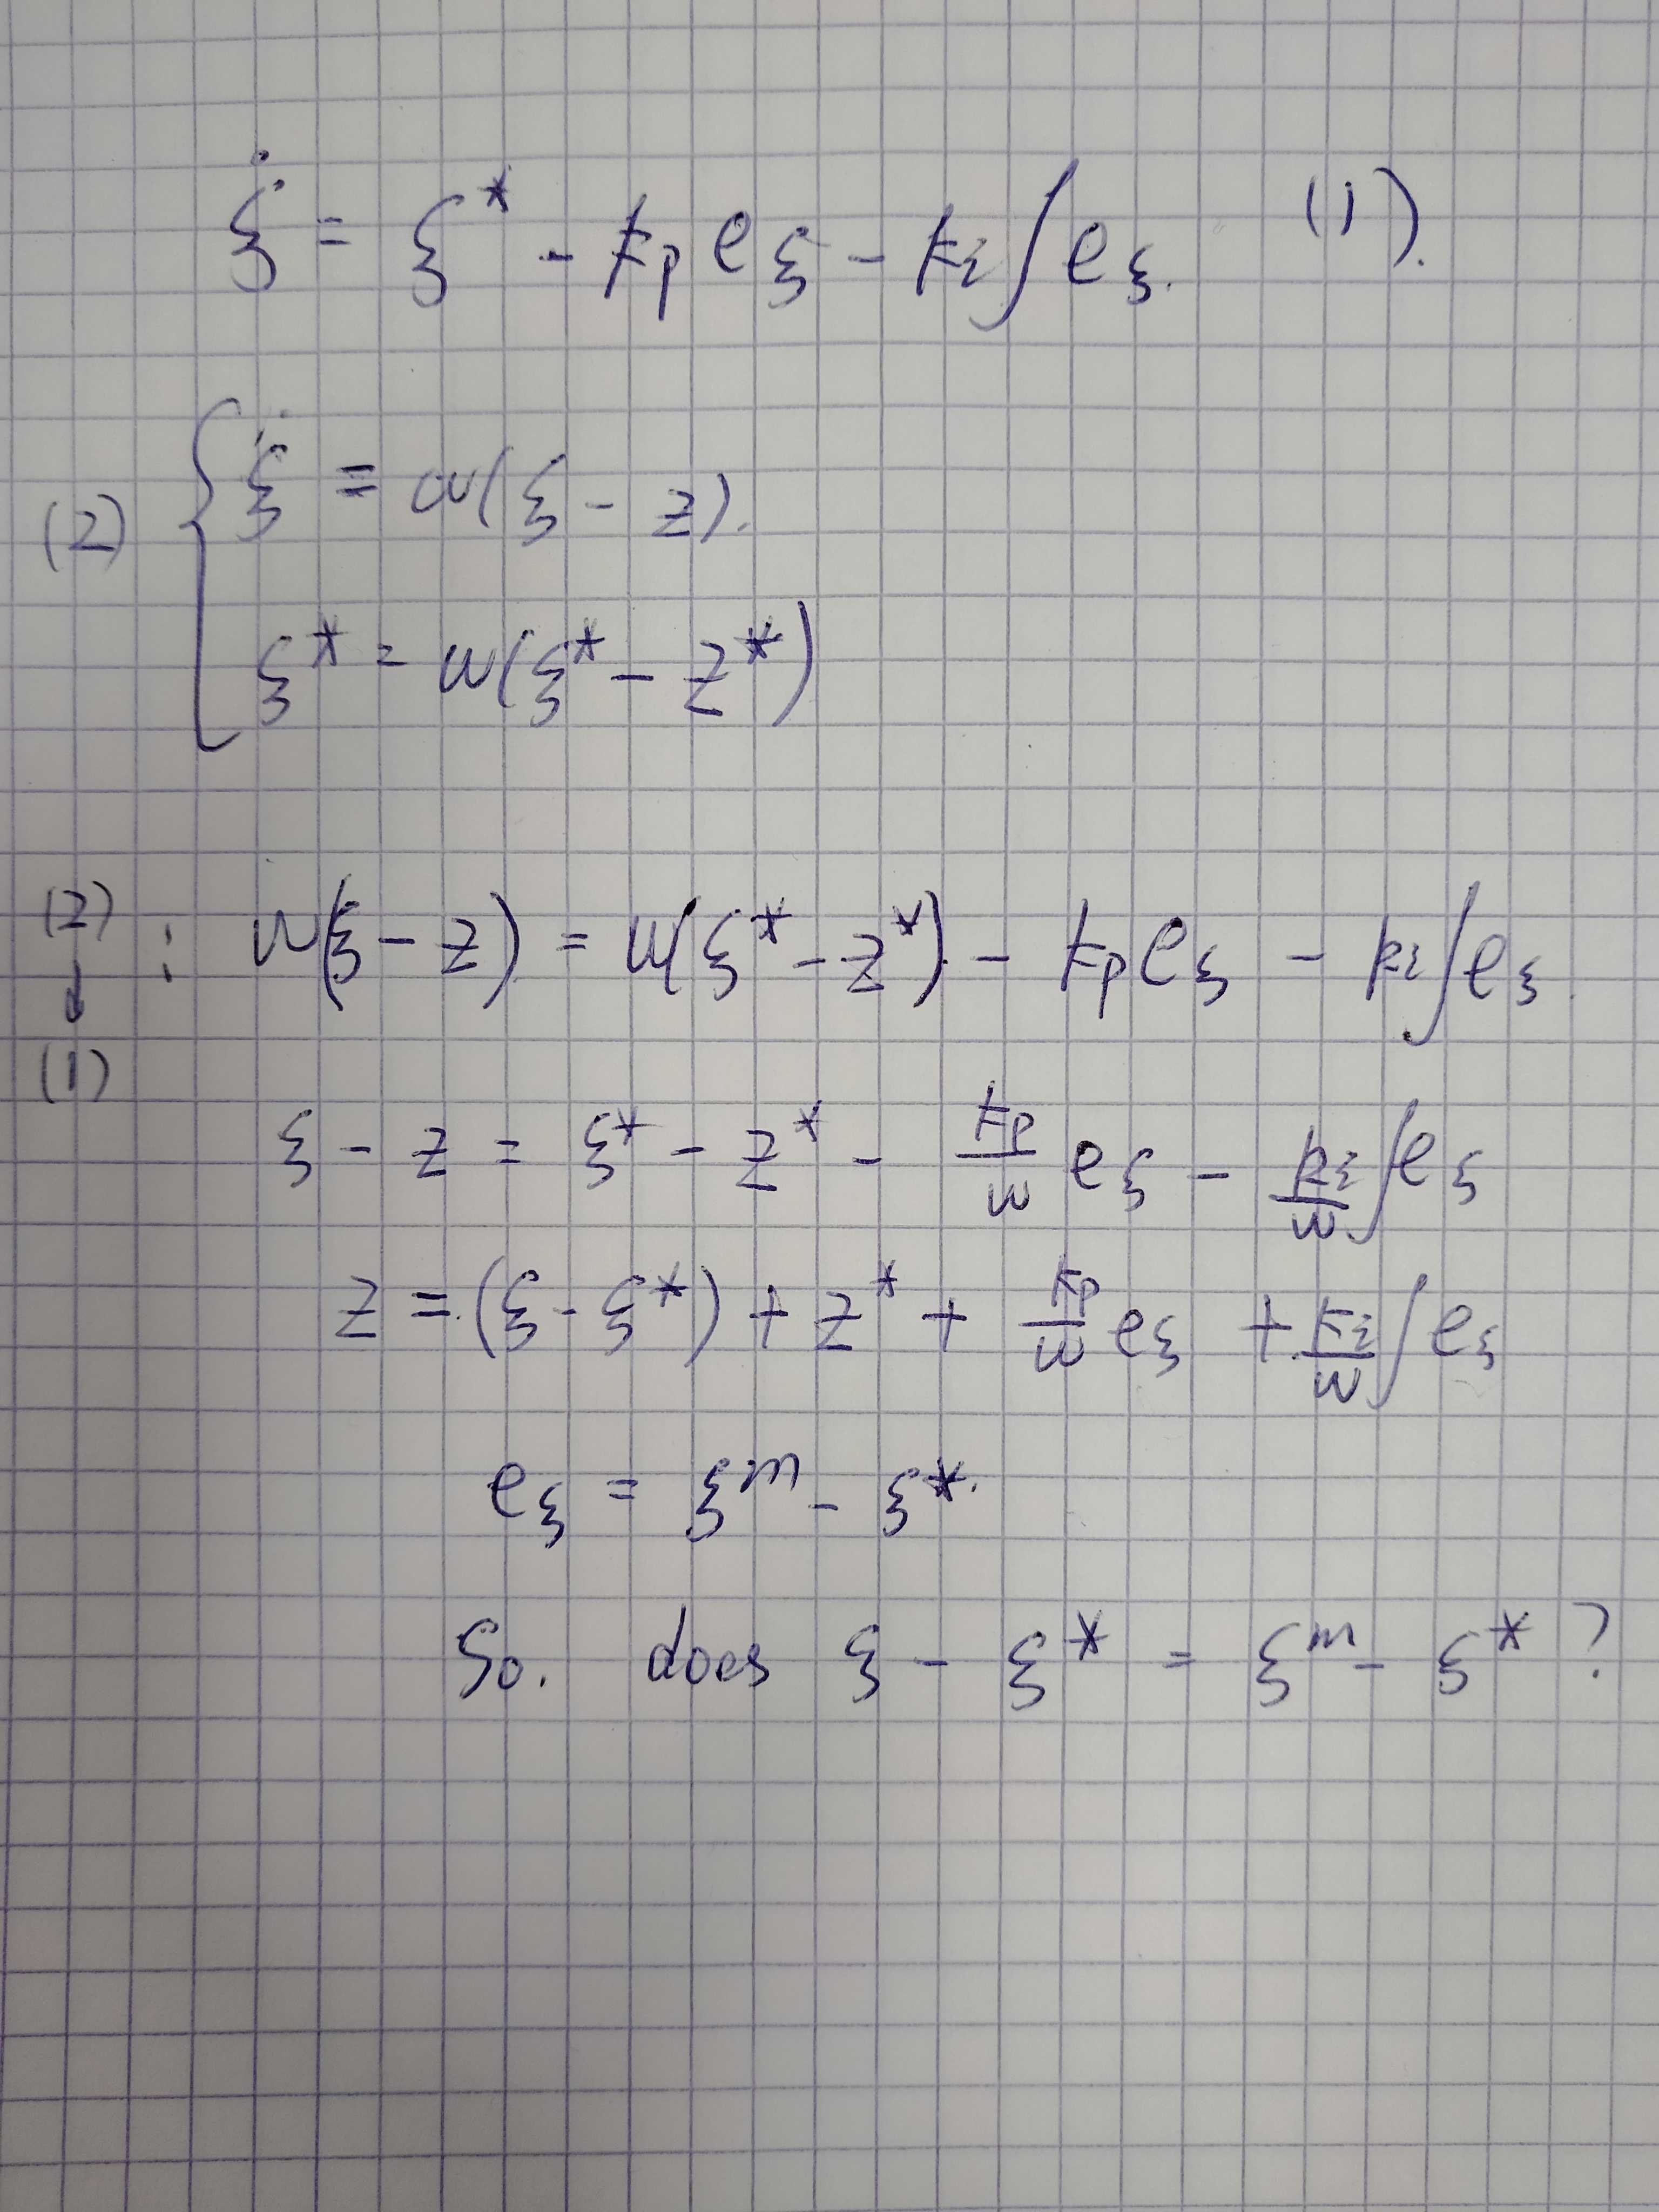 ξ̇ = ξ* - kp eξ - ki∫eξ. (1).
ξ̇ = w(ξ - z).
(2)
ξ* = w(ξ* - z*)
(2) ↓ (1) : w(ξ - z) = w(ξ* - z*) - kp eξ - ki∫eξ.
ξ - z = ξ* - z* - kp/w eξ - ki/w ∫eξ
z = (ξ - ξ*) + z* + kp/w eξ + ki/w ∫eξ
eξ = ξᵐ - ξ*.
So. does ξ - ξ* = ξᵐ - ξ* ?